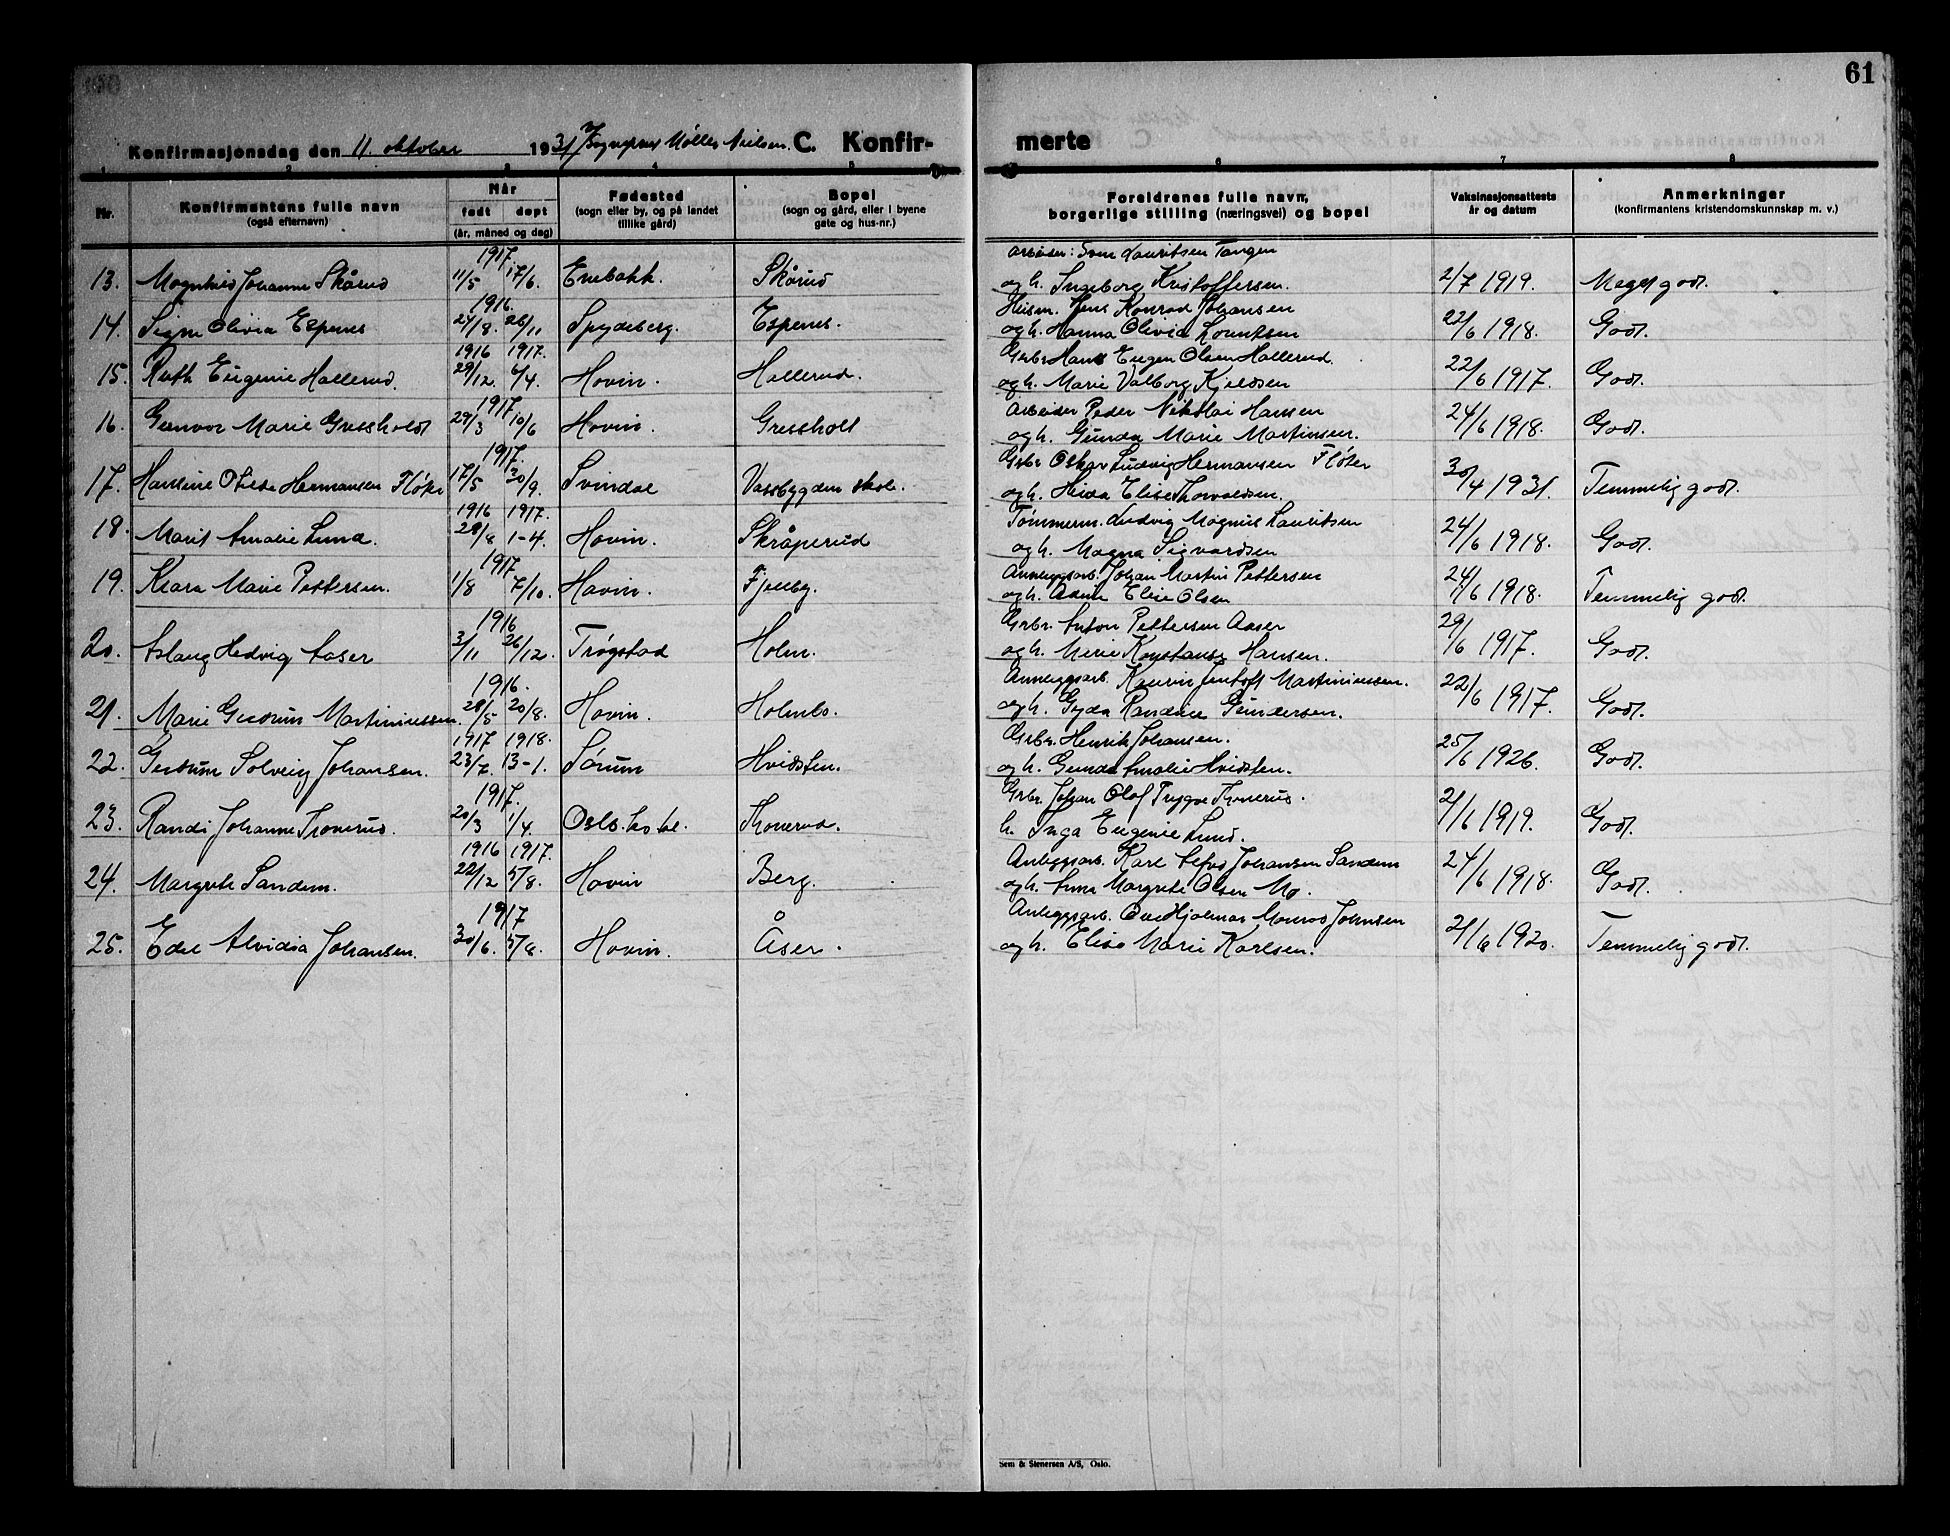 61
Konfirmasjonsdag den 11. oktober 1931 v/ Sogneprest Møller Nielsen. C. Konfir- merte
1 2 3 4 5 6 7 8
Nr. Konfirmantens fulle navn (også efternavn) Når født døpt (år, måned og dag) Fødested (sogn eller by, og på landet tillike gård) Bopel (sogn og gård, eller i byene gate og hus-nr.) Foreldrenes fulle navn, borgerlige stilling (næringsvei) og bopel Vaksinasjonsattests år og datum Anmerkninger (konfirmantens kristendomskunnskap m. v.)
1917. Arbeider: Sven Lauritsen Tangen
13. Magnhild Johanne Skårud 11/5 17/6. Enebakk. Skårud og h. Ingeborg Kristoffersen. 2/7 1919. Meget godt.
1916. Husm. Jens Konrad Johansen
14. Signe Olivia Espenes 24/8. 26/11 Spydeberg. Espenes. og h. Hanna Olivia Lorentsen 22/6 1918. Godt.
1916 1917. Grbr. Hans Eugen Olsen Hallerud.
15. Ruth Eugenie Hallerud. 29/12. 6/4. Hovin. Hallerud. og h. Marie Valborg Kjeldsen 22/6 1917. Godt.
1917 Arbeider Peder Nikolai Hansen
16. Gunvor Marie Gressholt 29/3 10/6 Hovin. Gressholt og h. Gunda Marie Martinsen. 24/6 1918. Godt.
1917. Grbr. Oskar Ludvig Hermansen Fløter
17. Hansine Otilde Hermansen Fløter 17/5 30/9. Svindal Vassbygden skole. og h. Hilda Elise Thorvaldsen. 30/4 1931. Temmelig godt.
1916 1917. Tømmerm. Ludvig Magnus Lauritsen
18. Marit Amalie Lund. 28/8 1-4. Hovin. Skråperud og h. Magna Sigvardsen 24/6 1918. Godt.
1917 Anleggsarb. Johan Martin Pettersen
19. Klara Marie Pettersen. 1/8 7/10. Hovin. Fjellby. og h. Adine Elise Olsen 24/6 1918. Temmelig godt.
1916 Grbr. Anton Pettersen Aaser
20. Aslaug Hedvig Aaser 3/11 26/12. Trøgstad Holm. og h. Marie Konstanse Hansen. 29/6 1917. Godt.
1916. Anleggsarb. Kaurin Jentoft Martiniussen.
21. Marie Gudrun Martiniussen. 28/5 20/8. Hovin. Holmbo. og h. Gyda Randine Gundersen. 22/6 1917. Godt.
1917 1918. Grbr. Henrik Johansen.
22. Gudrun Solveig Johansen. 23/7. 13-1. Sørum Hvidsten. og h. Gunda Amalie Hvidsten. 25/6 1926. Godt.
1917. Grbr. Johan Olaf Trygve Thonerud.
23. Randi Johanne Tronerud. 20/3 1/4. Oslo. Thonerud. h. Inga Eugenie Lund. 21/6 1919. Godt.
1916 1917. Anleggsarb. Karl Alfred Johansen Sandem
24. Margrete Sandem. 22/12 5/8. Hovin Berg. og h. Anna Margrete Olsen Mo. 24/6 1918. Godt.
1917 Anleggsarb. Ove Hjalmar Monrad Johnsen
25. Edel Alvidia Johansen. 30/6. 5/8. Hovin. Åser. og h. Elise Marie Karlsen. 21/6 1920. Temmelig godt.
Sem & Stenersen A/S, Oslo.